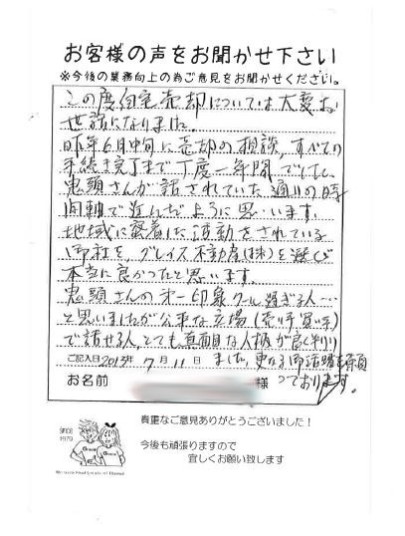 お客様の声をお聞かせ下さい
※今後の業務向上の為ご意見をお聞かせください。
この度自宅売却については大変お
世話になりました。
昨年6月中旬に売却の相談、すべての
手続き完了まで丁度一年間でした。
鬼頭さんが話されていた通りの時
間軸で進んだように思います。
地域に密着した活動をされている
御社を、グレイス不動産(株)を選び
本当に良かったと思います。
鬼頭さんの第一印象クール過ぎる人…
と思いましたが公平な立場(売り手買い手)
で話せる人、とても真面目な人柄が良く判り
ご記入日2015年7月11日 ました。更なる御活躍を願
お名前 様 っております。
貴重なご意見ありがとうございました!
今後も頑張りますので
宜しくお願い致します
SINCE
1979